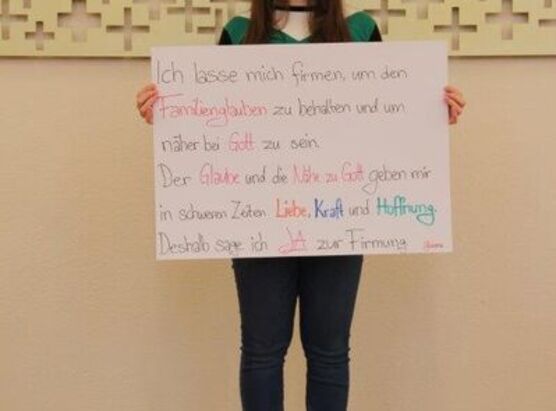 Ich lasse mich firmen, um den
Familienglauben zu behalten und um
näher bei Gott zu sein.
Der Glaube und die Nähe zu Gott geben mir
in schweren Zeiten Liebe, Kraft und Hoffnung.
Deshalb sage ich JA zur Firmung